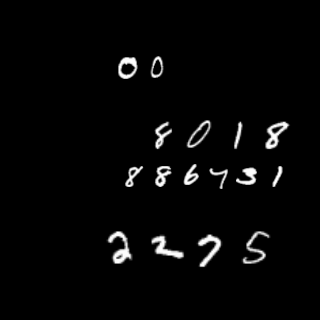 00
8018
886731
2275